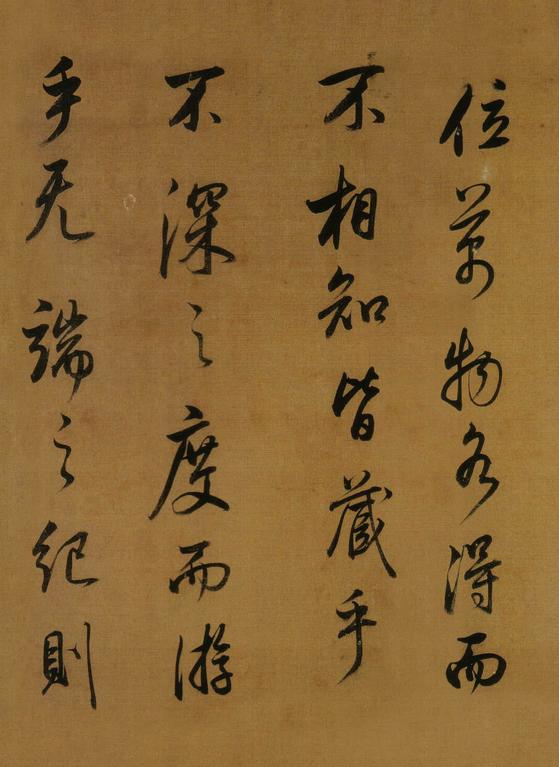 位萬物各得而
不相知皆蔵乎
不深之度而游
乎无端之纪則